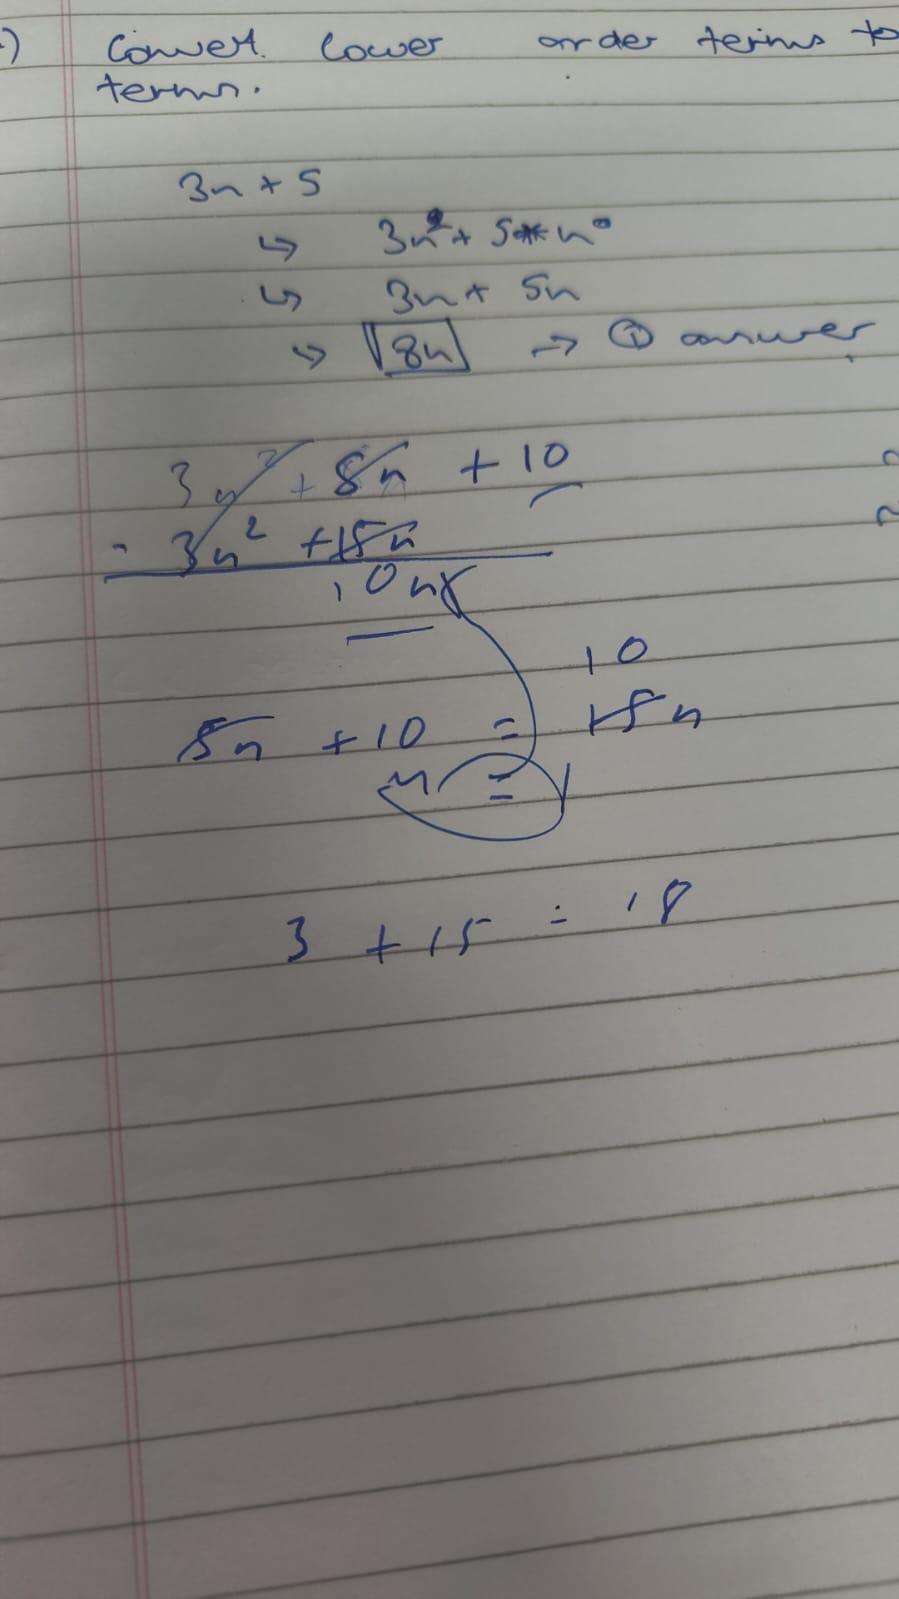 Convert lower order terms to
terms.
3n + 5
↳ 3n² + 5*n⁰
↳ 3n + 5n
↳ 8n → ① answer
3n² + 5n + 10
- 3n² + 15n
10n
10
5n + 10 = 15n
n = 1
3 + 15 = 18